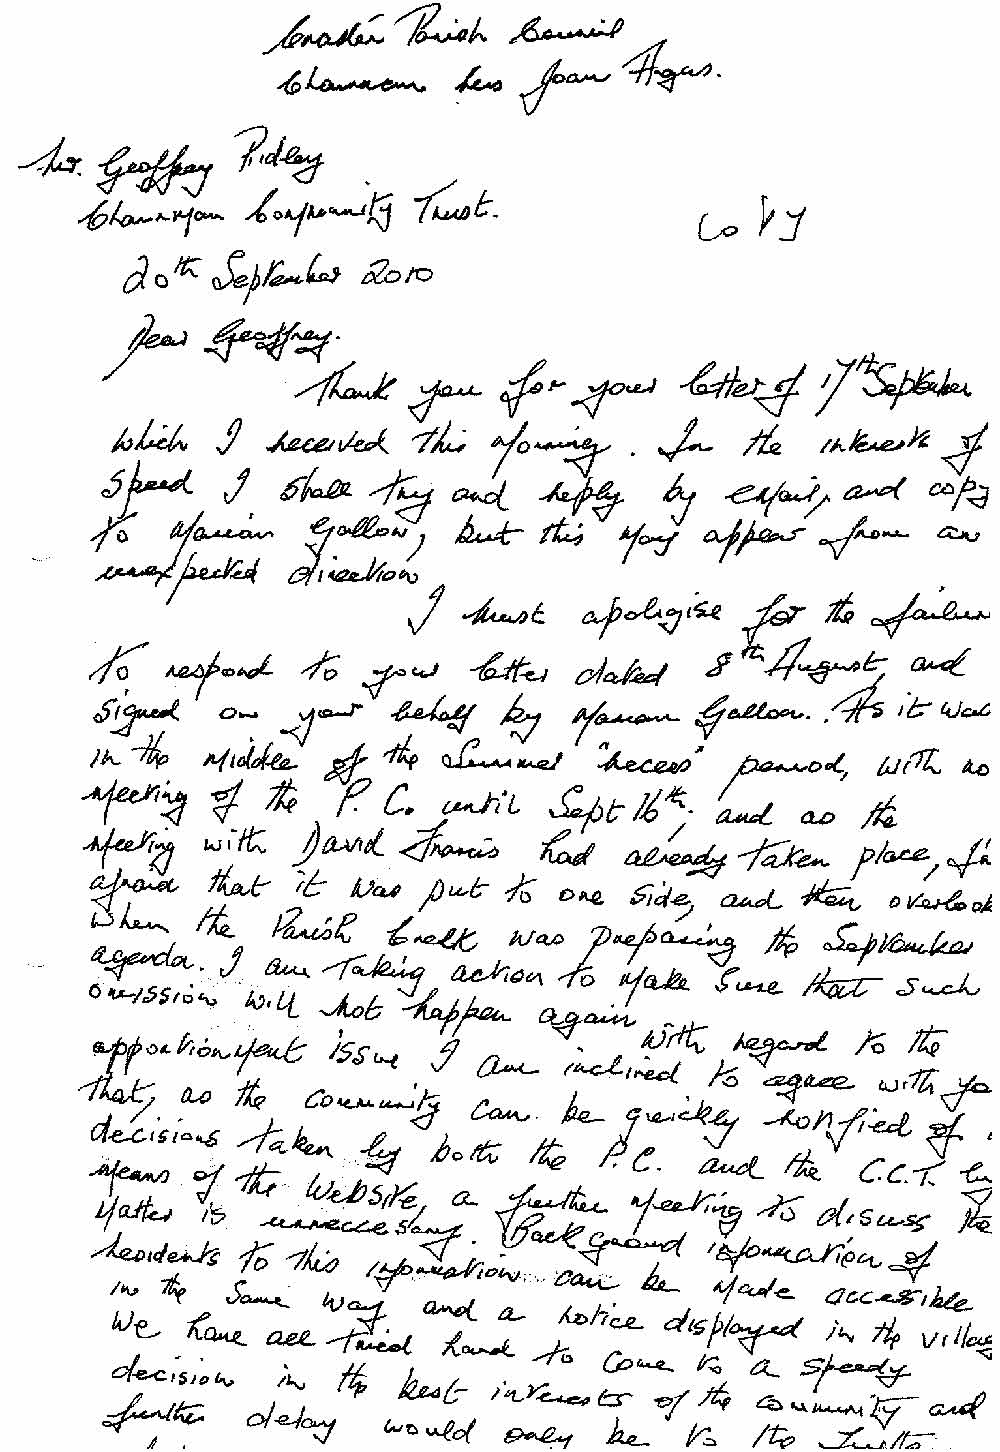 Craster Parish Council
Chairman Mrs Joan Angus.
Mr. Geoffrey Ridley
Chairman Community Trust.
COPY
20th September 2010
Dear Geoffrey.
Thank you for your letter of 17th September
which I received this morning. In the interests of
speed I shall try and reply by email, and copy
to Marian Gallon, but this may appear from an
unexpected direction
I must apologise for the failur
to respond to your letter dated 8th August, and
signed on your behalf by Marian Gallon. As it was
in the middle of the Summer "recess" period, with no
meeting of the P.C. until Sept 16th; and as the
meeting with David Francis had already taken place, I'm
afraid that it was put to one side, and then overlook
when the Parish Clerk was preparing the September
agenda. I am taking action to make sure that such
omission will not happen again
With regard to the
apportionment issue I am inclined to agree with yo
that, as the community can be quickly notified of
decisions taken by both the P.C. and the C.C.T. by
means of the Website, a further meeting to discuss the
matter is unneccesary. Background information of
residents to this information can be made accessible
in the same way and a notice displayed in the villag
We have all tried hard to come to a speedy
decision in the best interests of the community and
further delay would only be to the